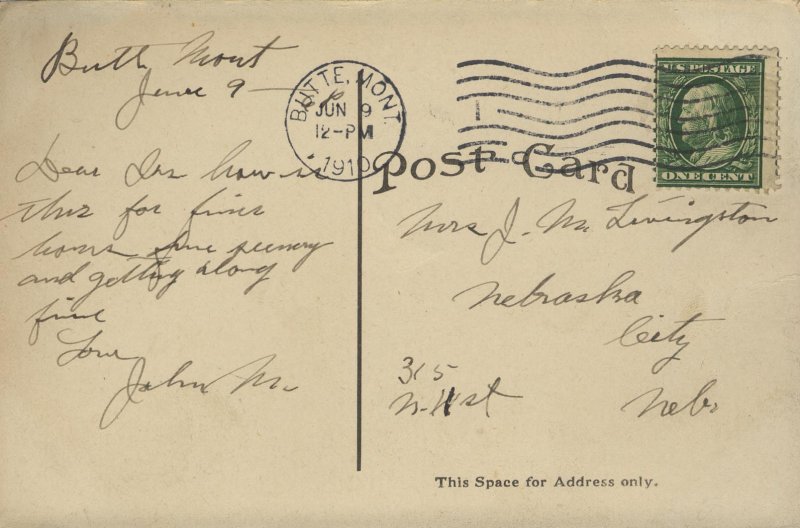 Butte Mont
June 9 —
BUTTE, MONT.
JUN 9
12-PM
1910
U.S. POSTAGE
ONE CENT
Post Card
Dear Ira how is
this for fine
homes fine scenery
and getting along
fine
Love
John M.
Mrs J. M. Livingston
Nebraska
City
315
N-11st
Nebr
This Space for Address only.